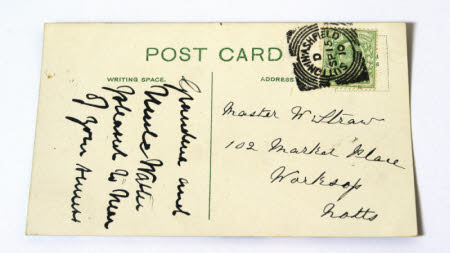 POST CARD
WRITING SPACE.
ADDRESS
Grandma and
Uncle Walter
pleased to hear
of your
SUTTON-IN-ASHFIELD
D
SP 15
10
Master W. Straw
102 Market Place
Worksop
Notts